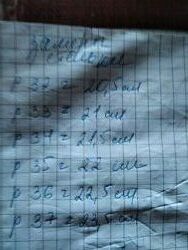 замеры
р 32 = 20,5 см
р 33 = 21 см
р 34 = 21,5 см
р 35 = 22 см
р 36 = 22,5 см
р 37 = 23,5 см